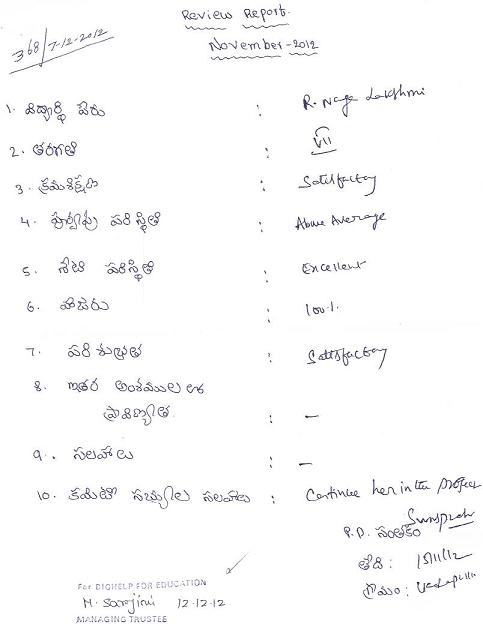 Review Report.
368/7-12-2012
November-2012
1. విద్యార్థి పేరు : R. Naga Lakshmi
2. తరగతి : VII
3. క్రమశిక్షణ : Satisfactory
4. పూర్వపు పరిస్థితి : Above Average
5. నేటి పరిస్థితి : Excellent
6. హాజరు : 100%
7. పరిశుభ్రత : Satisfactory
8. ఇతర అంశముల లో
ప్రావీణ్యత : —
9. సలహాలు : —
10. కమిటీ సభ్యుల సలహాలు : Continue her in the project
P.D. సంతకం
తేది : 15/11/12
గ్రామం :
For BIGHELP FOR EDUCATION
M. Sarojini 12-12-12
MANAGING TRUSTEE